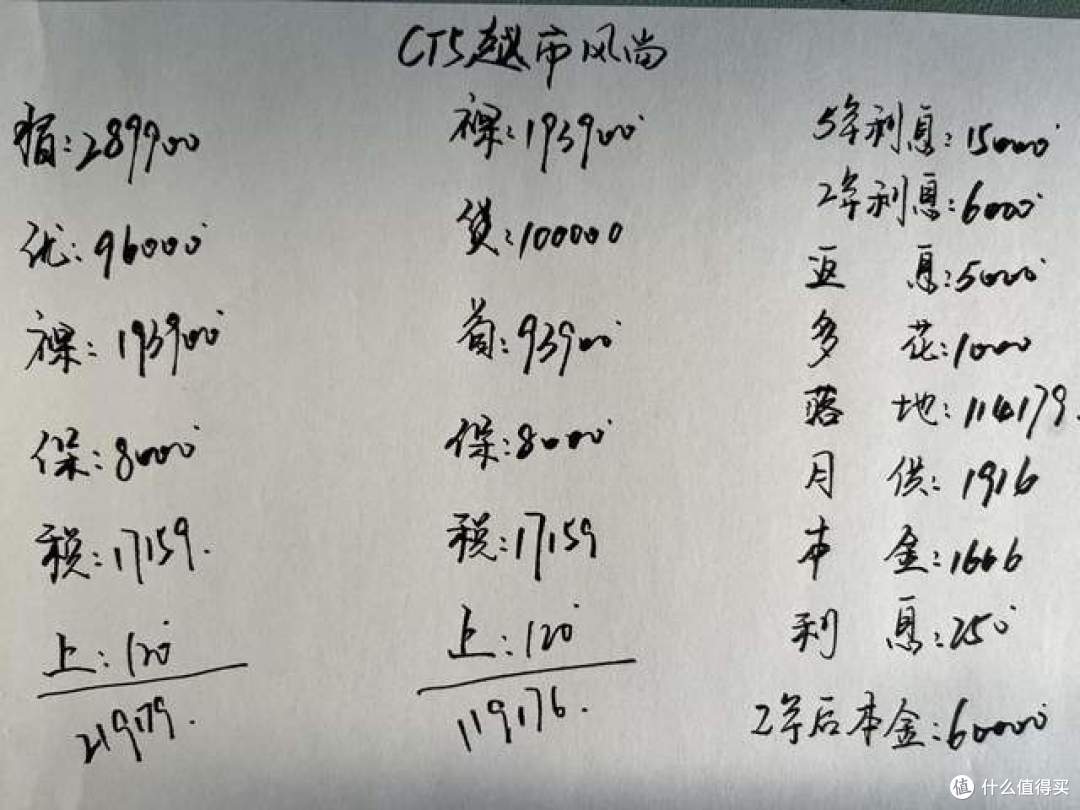 CT5超市风尚
指:289900
优:96000
裸:193900
保:8000
税:17159.
上:120
219179.
裸:193900
贷:100000
首:93900
保:8000
税:17159
上:120
119176.
5年利息:15000
2年利息:6000
返息:5000
多花:1000
落地:114179.
月供:1916
本金:1666
利息:250
2年后本金:60000
值 什么值得买